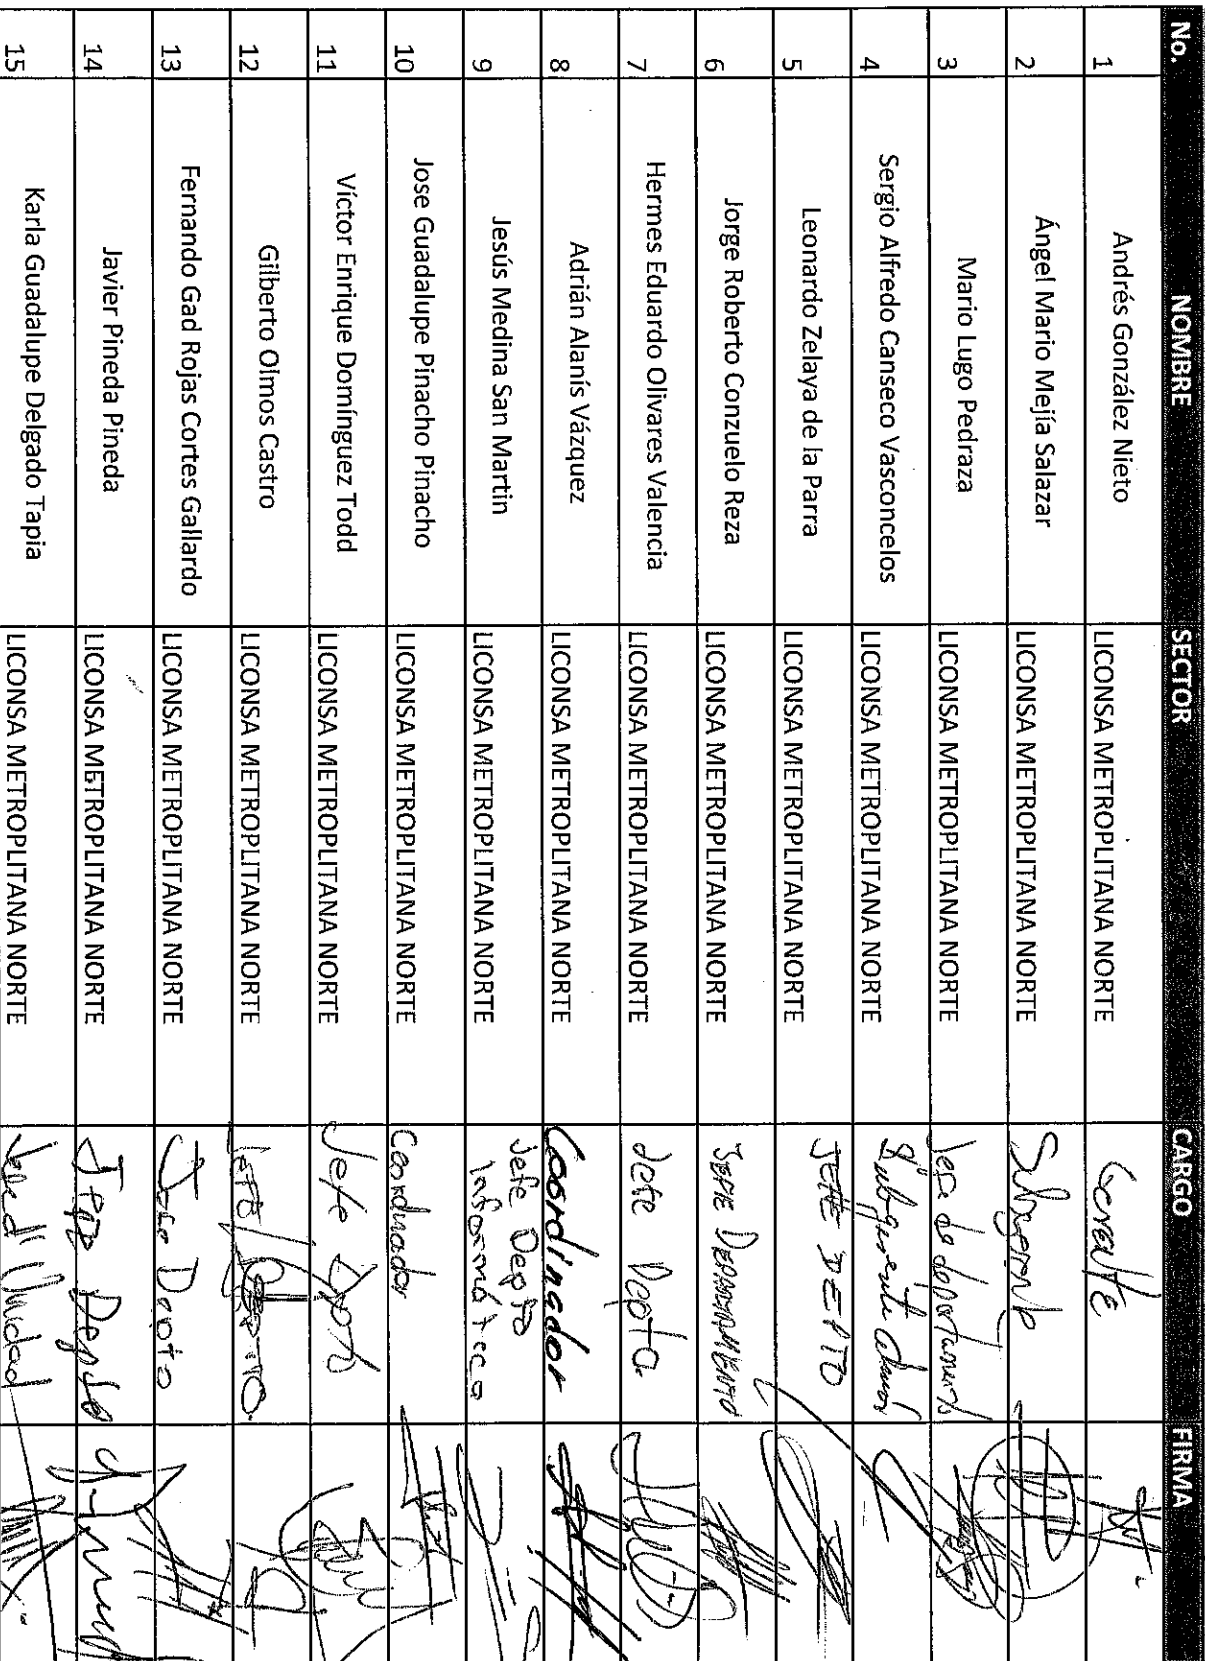 No. NOMBRE SECTOR CARGO FIRMA
1 Andrés González Nieto LICONSA METROPLITANA NORTE Gerente
2 Ángel Mario Mejía Salazar LICONSA METROPLITANA NORTE Subgerente
3 Mario Lugo Pedraza LICONSA METROPLITANA NORTE Jefe de departamento
4 Sergio Alfredo Canseco Vasconcelos LICONSA METROPLITANA NORTE Subgerente
5 Leonardo Zelaya de la Parra LICONSA METROPLITANA NORTE JEFE DEPTO
6 Jorge Roberto Conzuelo Reza LICONSA METROPLITANA NORTE JEFE DEPARTAMENTO
7 Hermes Eduardo Olivares Valencia LICONSA METROPLITANA NORTE Jefe Depto.
8 Adrián Alanís Vázquez LICONSA METROPLITANA NORTE Coordinador
9 Jesús Medina San Martin LICONSA METROPLITANA NORTE Jefe Depto
Informática
10 Jose Guadalupe Pinacho Pinacho LICONSA METROPLITANA NORTE Coordinador
11 Víctor Enrique Domínguez Todd LICONSA METROPLITANA NORTE Jefe Depto
12 Gilberto Olmos Castro LICONSA METROPLITANA NORTE Jefe
13 Fernando Gad Rojas Cortes Gallardo LICONSA METROPLITANA NORTE Jefe Depto
14 Javier Pineda Pineda LICONSA METROPLITANA NORTE Jefe Depto
15 Karla Guadalupe Delgado Tapia LICONSA METROPLITANA NORTE Unidad